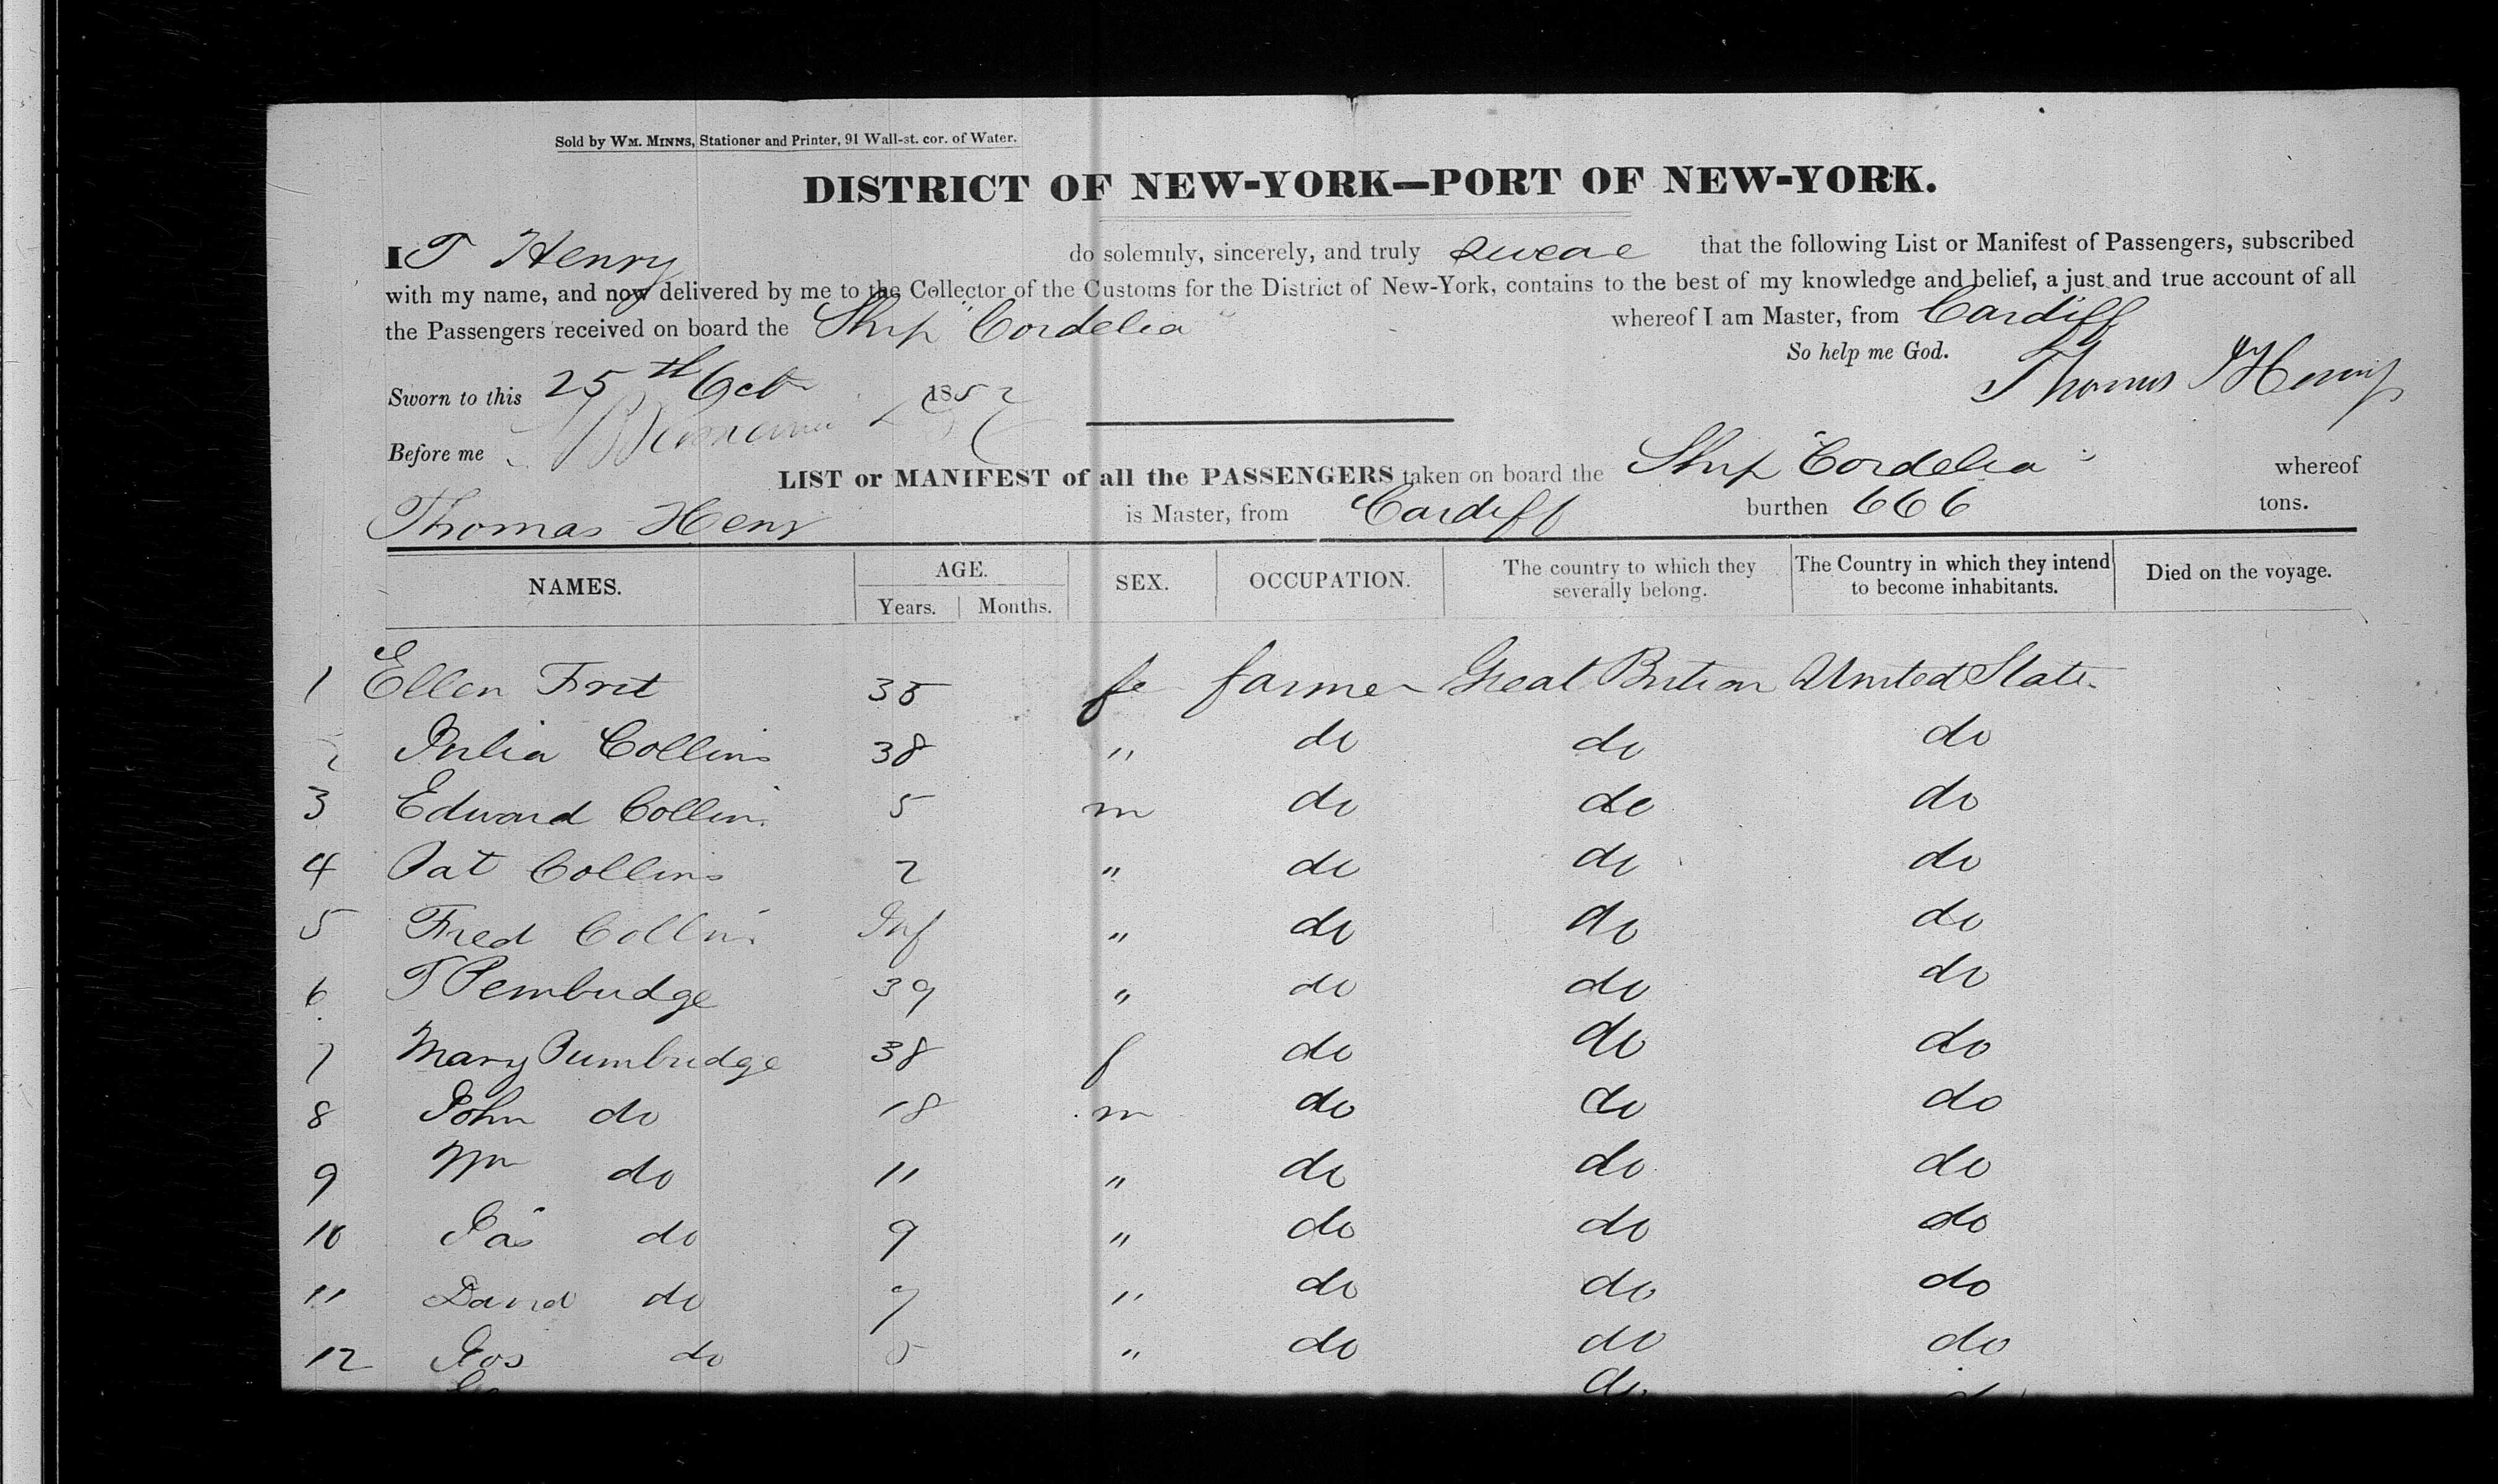 Sold by WM. MINNS, Stationer and Printer, 91 Wall-st. cor. of Water.
DISTRICT OF NEW-YORK—PORT OF NEW-YORK.
I T Henry do solemnly, sincerely, and truly swear that the following List or Manifest of Passengers, subscribed
with my name, and now delivered by me to the Collector of the Customs for the District of New-York, contains to the best of my knowledge and belief, a just and true account of all
the Passengers received on board the Ship "Cordelia" whereof I am Master, from Cardiff
So help me God.
Thomas Henry
Sworn to this 25th Oct 1852
Before me
LIST or MANIFEST of all the PASSENGERS taken on board the Ship "Cordelia" whereof
Thomas Henry is Master, from Cardiff burthen 666 tons.
NAMES. AGE. Years. Months. SEX. OCCUPATION. The country to which they severally belong. The Country in which they intend to become inhabitants. Died on the voyage.
1 Ellen 35 fe farmer Great Britian United States
2 Julia Collins 38 " do do do
3 Edward Collins 5 m do do do
4 Pat Collins 2 " do do do
5 Fred Collins Inf " do do do
6 T Pembudge 39 " do do do
7 Mary Pumbudge 38 f do do do
8 John do 18 m do do do
9 Wm do 11 " do do do
10 Jas do 9 " do do do
11 David do 7 " do do do
12 Jos do 5 " do do do
do